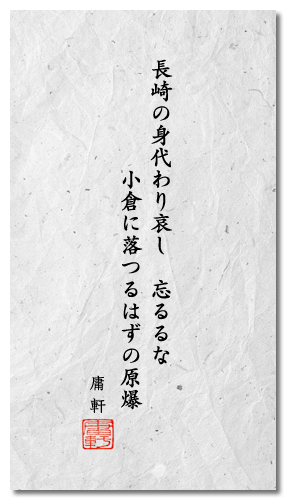 長崎の身代わり哀し　忘るるな
小倉に落つるはずの原爆
庸軒
庸軒